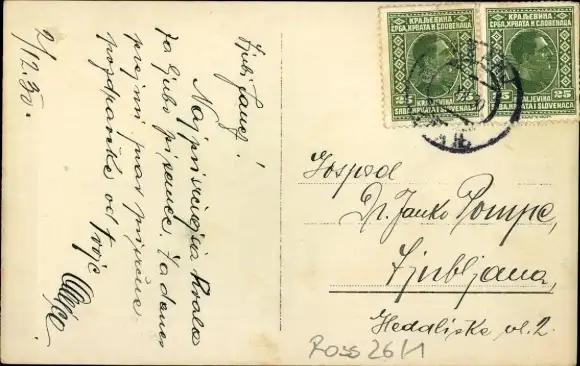 КРАЉЕВИНА
СРБА, ХРВАТА И СЛОВЕНАЦА
25 25
KRALJEVINA
SRBA, HRVATA I SLOVENACA
КРАЉЕВИНА
СРБА, ХРВАТА И СЛОВЕНАЦА
25 25
KRALJEVINA
SRBA, HRVATA I SLOVENACA
2/12. 30.
Ljubi Janez!
Najprisrčnejša hvala
za ljubo pisemce. Za danes
prejmi par prisrčne
pozdravčke od Tvoje
Gospod
Dr. Janko Pompe,
Ljubljana,
Medaljske ul. 2.
Ross 26/1